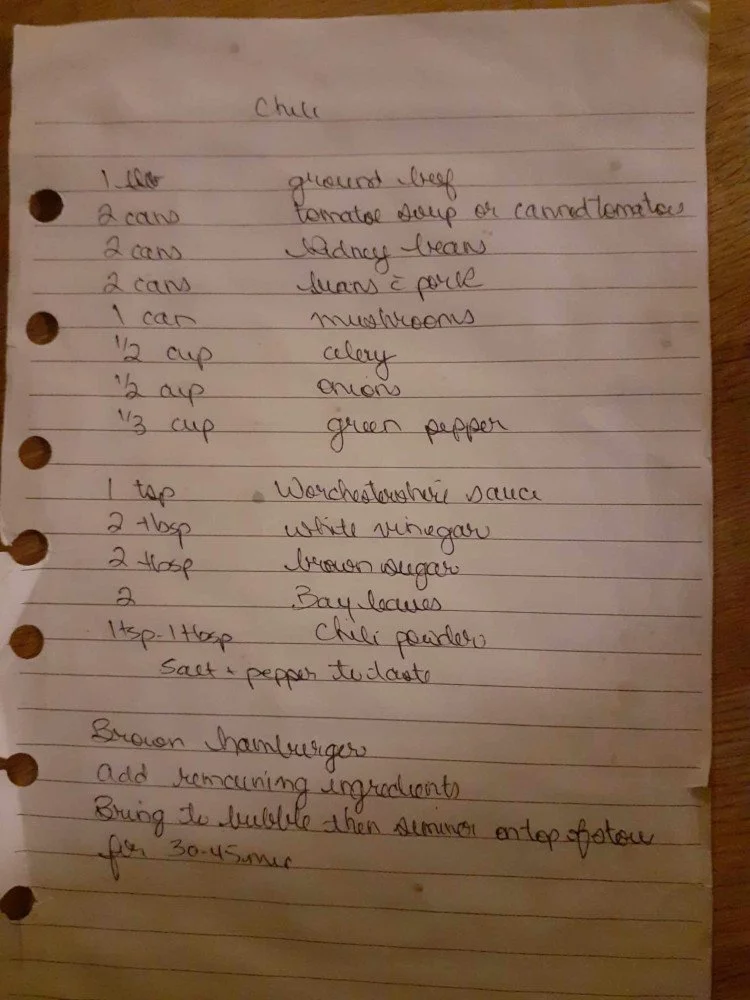 Chili
1 ground beef
2 cans tomatoe soup or canned tomatoes
2 cans kidney beans
2 cans beans c̄ pork
1 can mushrooms
1/2 cup celery
1/2 cup onions
1/3 cup green pepper
1 tsp Worchestershire sauce
2 tbsp white vinegar
2 tbsp brown sugar
2 Bay leaves
1 tsp-1 tbsp Chili powder
Salt + pepper to taste
Brown hamburger
add remaining ingredients
Bring to bubble then simmer on top of stove
for 30-45 min